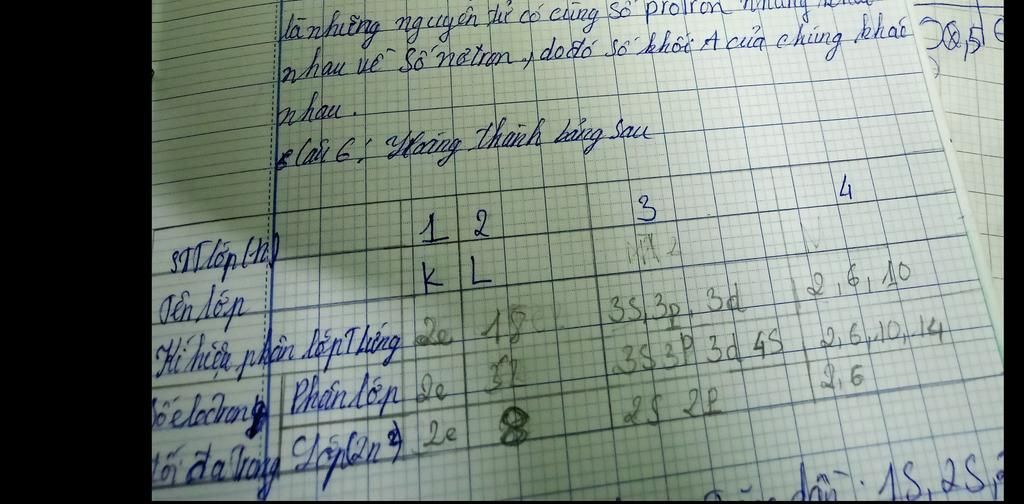 là những nguyên tử có cùng số protron nhưng khác
nhau về số nơtron, do đó số khối A của chúng khác
nhau.
Câu 6: Hoàng thành bảng sau
STT lớp (n) 1 2 3 4
Tên lớp K L
Kí hiệu phân lớp Tương 2e 18 3s, 3p, 3d 2, 6, 10
Số electrong Phân lớp 2e 32 3s 3p 3d 4s 2, 6, 10, 14
tối đa trong Lớp (2n²) 2e 8 2s 2p 2, 6
1s, 2s,